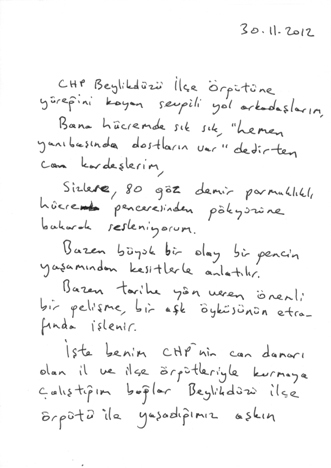 30.11.2012
CHP Beylikdüzü İlçe Örgütüne
yüreğini koyan sevgili yol arkadaşlarım,
Bana hücremde sık sık, "hemen
yanıbaşında dostların var" dedirten
can kardeşlerim,
Sizlere, 80 göz demir parmaklıklı
hücre penceresinden gökyüzüne
bakarak sesleniyorum.
Bazen büyük bir olay bir gencin
yaşamından kesitlerle anlatılır.
Bazen tarihe yön veren önemli
bir gelişme, bir aşk öyküsünün etra-
fında işlenir.
İşte benim CHP'nin can damarı
olan il ve ilçe örgütleriyle kurmaya
çalıştığım bağlar Beylikdüzü ilçe
örgütü ile yaşadığımız aşkın